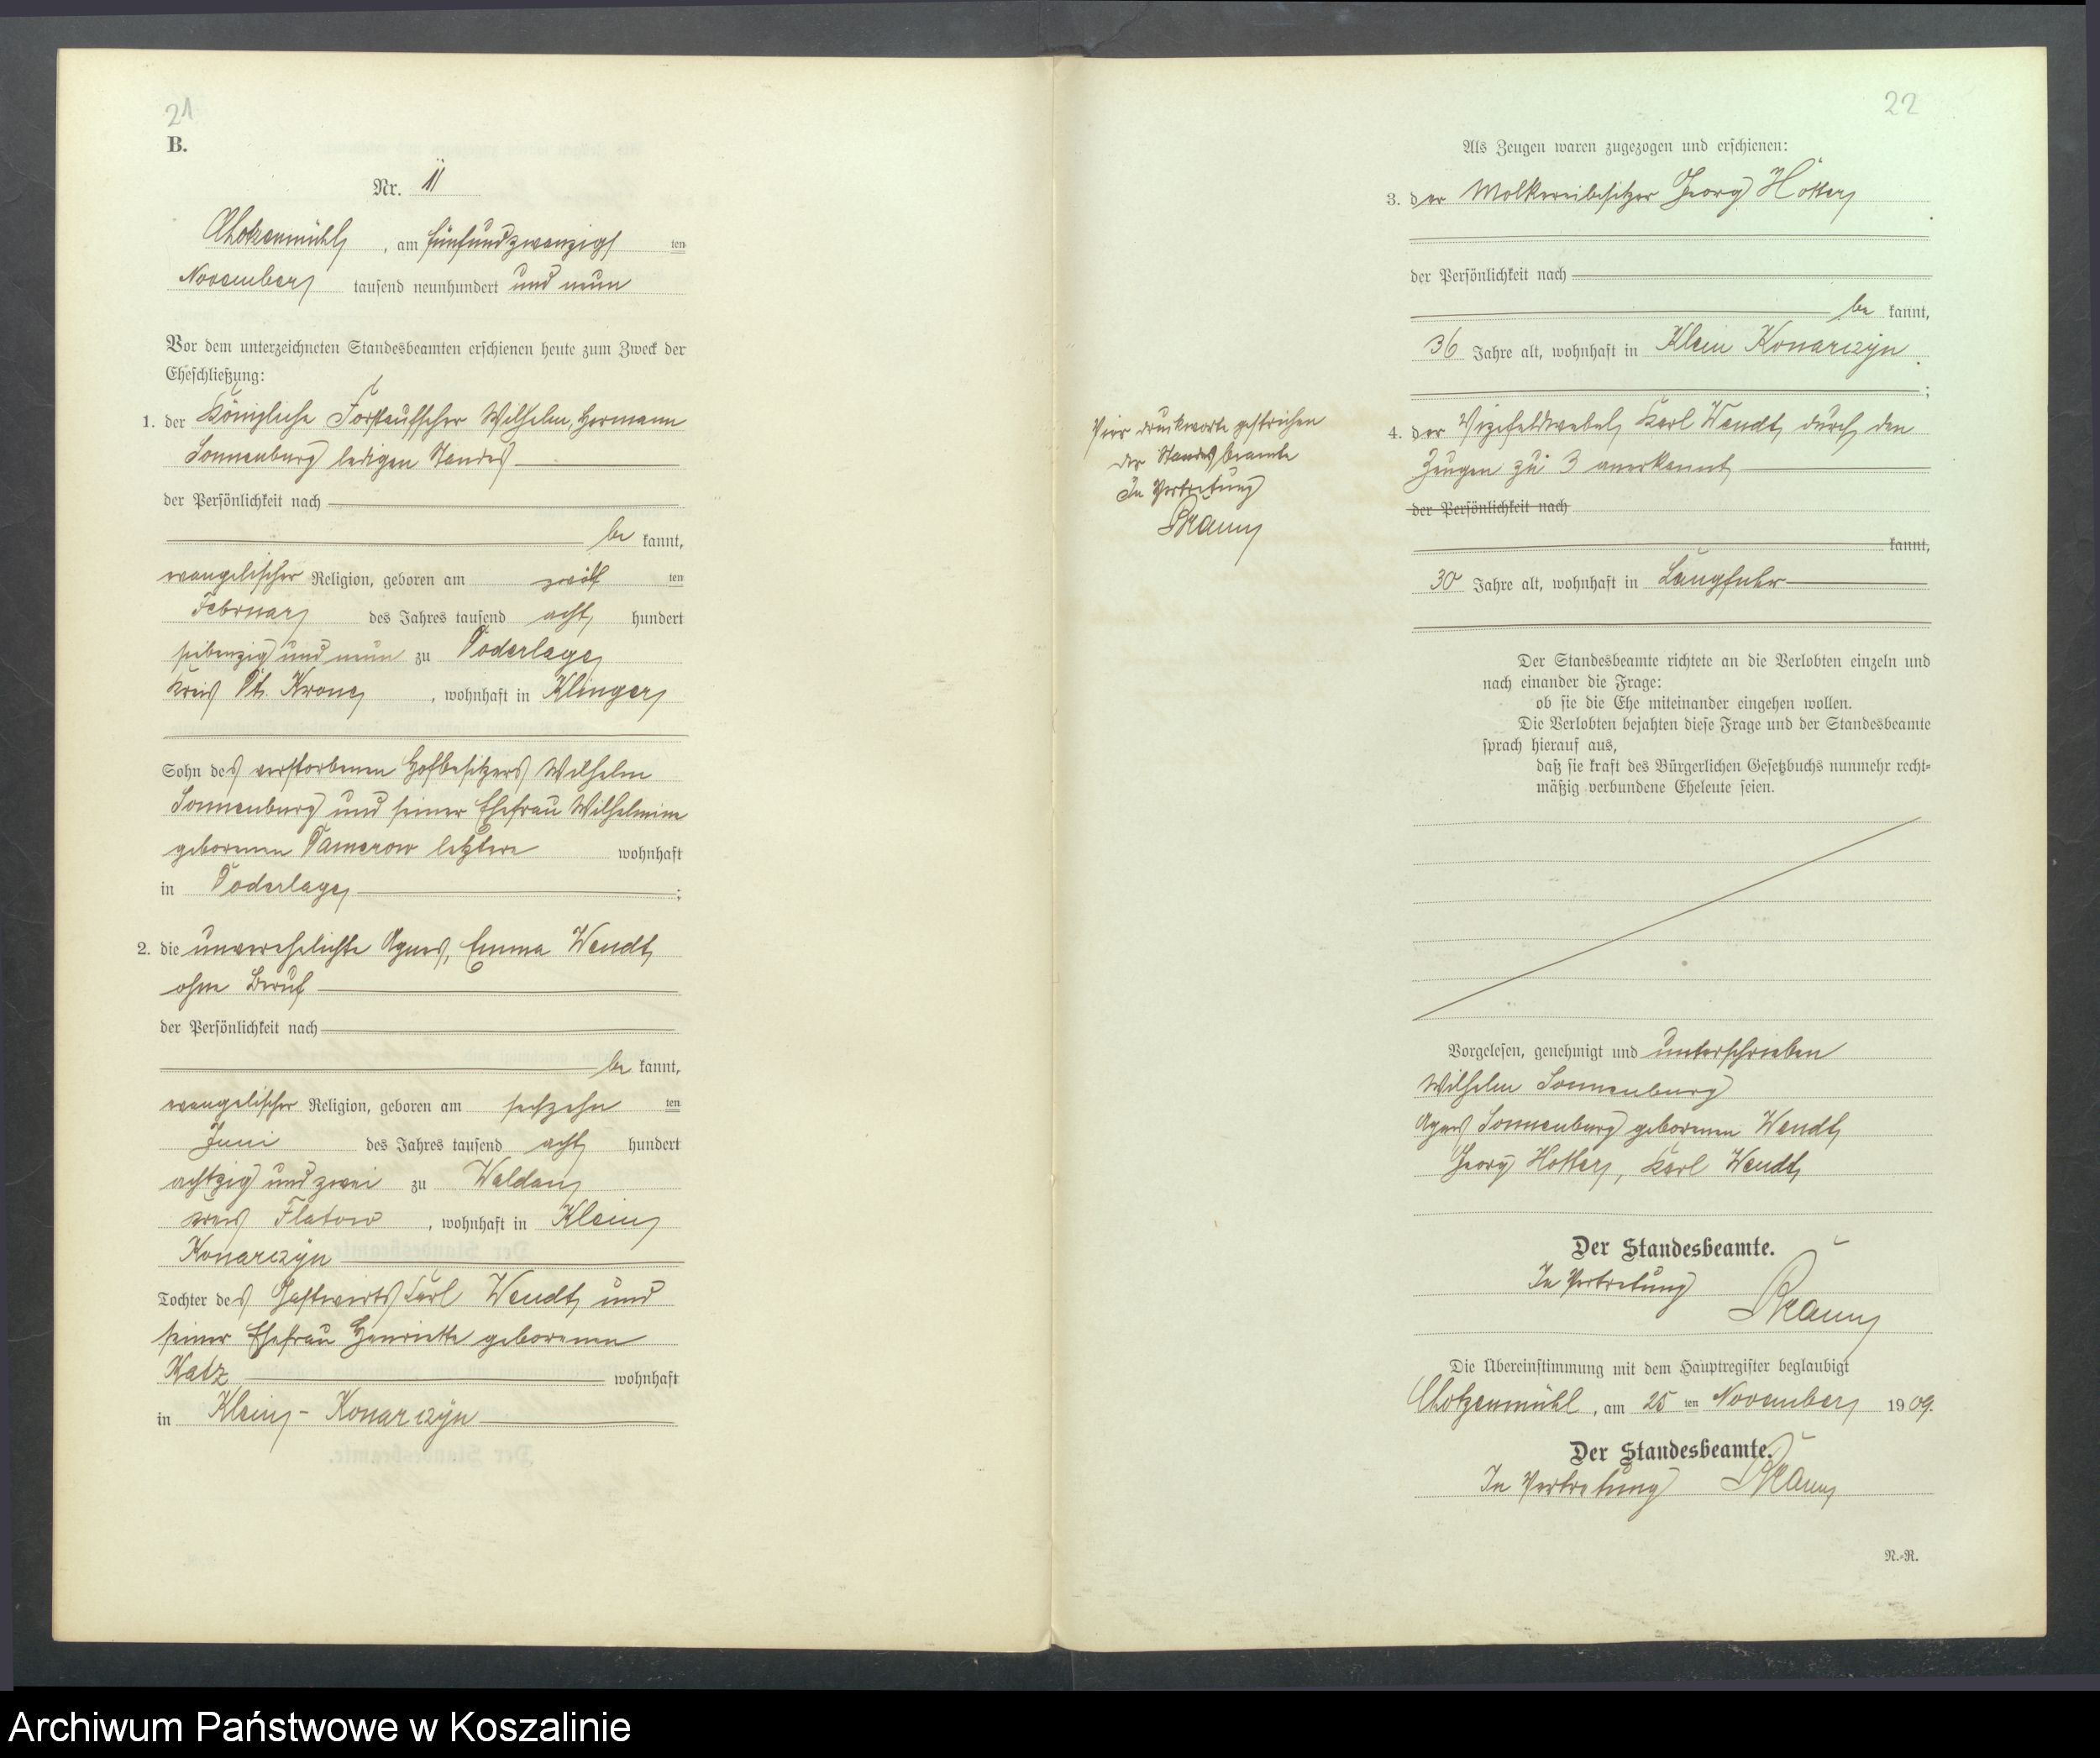 21
B.
Nr. 11
Chotzenmühl, am fünfundzwanzigsten
November tausend neunhundert und neun
Vor dem unterzeichneten Standesbeamten erschienen heute zum Zweck der
Eheschließung:
1. der Königliche Forstaufseher Wilhelm, Hermann
Sonnenburg ledigen Standes
der Persönlichkeit nach
be kannt,
evangelischer Religion, geboren am zwölf ten
Februar des Jahres tausend acht hundert
siebenzig und neun zu Doderlage
Kreis Dt. Krone, wohnhaft in Klinger
Sohn des verstorbenen Hofbesitzers Wilhelm
Sonnenburg und seiner Ehefrau Wilhelmine
geborenen Damerow letztere wohnhaft
in Doderlage ;
2. die unverehelichte Agnes, Emma Wendt,
ohne Beruf
der Persönlichkeit nach
be kannt,
evangelischer Religion, geboren am sechzehn ten
Juni des Jahres tausend acht hundert
achtzig und zwei zu Waldau
Kreis Flatow, wohnhaft in Klein
Konarczyn
Tochter des Gastwirts Karl Wendt und
seiner Ehefrau Henriette geborenen
Katz wohnhaft
in Klein - Konarczyn
22
Als Zeugen waren zugezogen und erschienen:
3. der Molkereibesitzer Georg Hotter
der Persönlichkeit nach
be kannt,
36 Jahre alt, wohnhaft in Klein Konarczyn
;
4. der Vizefeldwebel Karl Wendt, durch den
Zeugen zu 3 anerkannt
der Persönlichkeit nach
kannt,
30 Jahre alt, wohnhaft in Langfuhr
Vier Druckworte gestrichen
Der Standesbeamte
In Vertretung
Der Standesbeamte richtete an die Verlobten einzeln und
nach einander die Frage:
ob sie die Ehe miteinander eingehen wollen.
Die Verlobten bejahten diese Frage und der Standesbeamte
sprach hierauf aus,
daß sie kraft des Bürgerlichen Gesetzbuchs nunmehr recht-
mäßig verbundene Eheleute seien.
Vorgelesen, genehmigt und unterschrieben
Wilhelm Sonnenburg
Agnes Sonnenburg geborenen Wendt,
Georg Hotter, Karl Wendt,
Der Standesbeamte.
In Vertretung
Die Übereinstimmung mit dem Hauptregister beglaubigt
Chotzenmühl, am 25 ten November 1909.
Der Standesbeamte.
In Vertretung
N.-R.
Archiwum Państwowe w Koszalinie